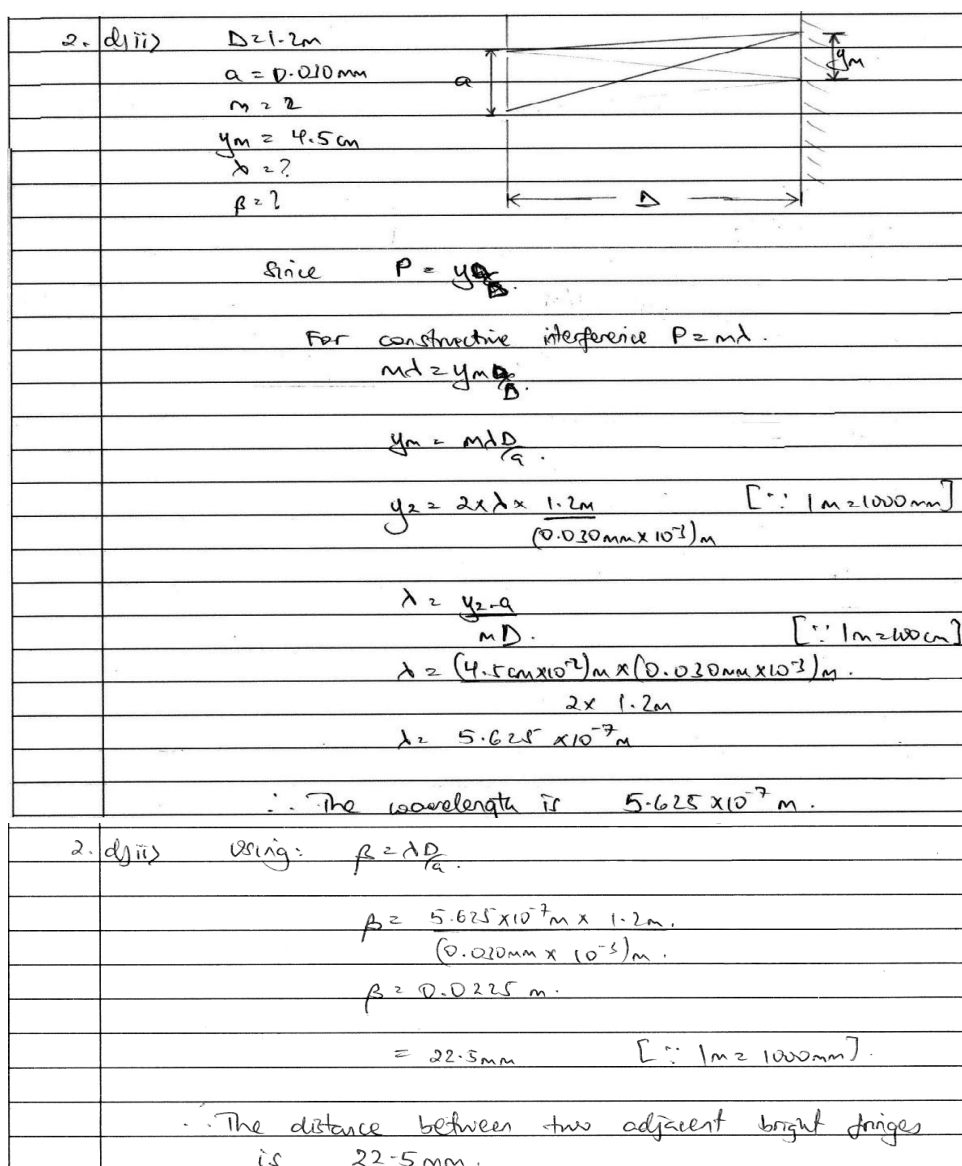 2. d) ii) D=1.2m
a = 0.030mm
m = 2
ym = 4.5cm
λ = ?
β = ?
a
ym
D
Since P = ya/D.
For constructive interference P = mλ.
mλ = ym a/D.
ym = mλD/a.
y2 = 2×λ× 1.2m/(0.030mm×10⁻³)m [∵ 1m=1000mm]
λ = y2.a/mD. [∵ 1m=100cm]
λ = (4.5cm×10⁻²)m×(0.030mm×10⁻³)m./2× 1.2m
λ = 5.625 ×10⁻⁷m
∴ The wavelength is 5.625×10⁻⁷ m.
2. d) ii) Using: β = λD/a.
β = 5.625×10⁻⁷m × 1.2m./(0.030mm× 10⁻³)m.
β = 0.0225 m.
= 22.5mm [∵ 1m = 1000mm].
∴ The distance between two adjacent bright fringes
is 22.5mm.